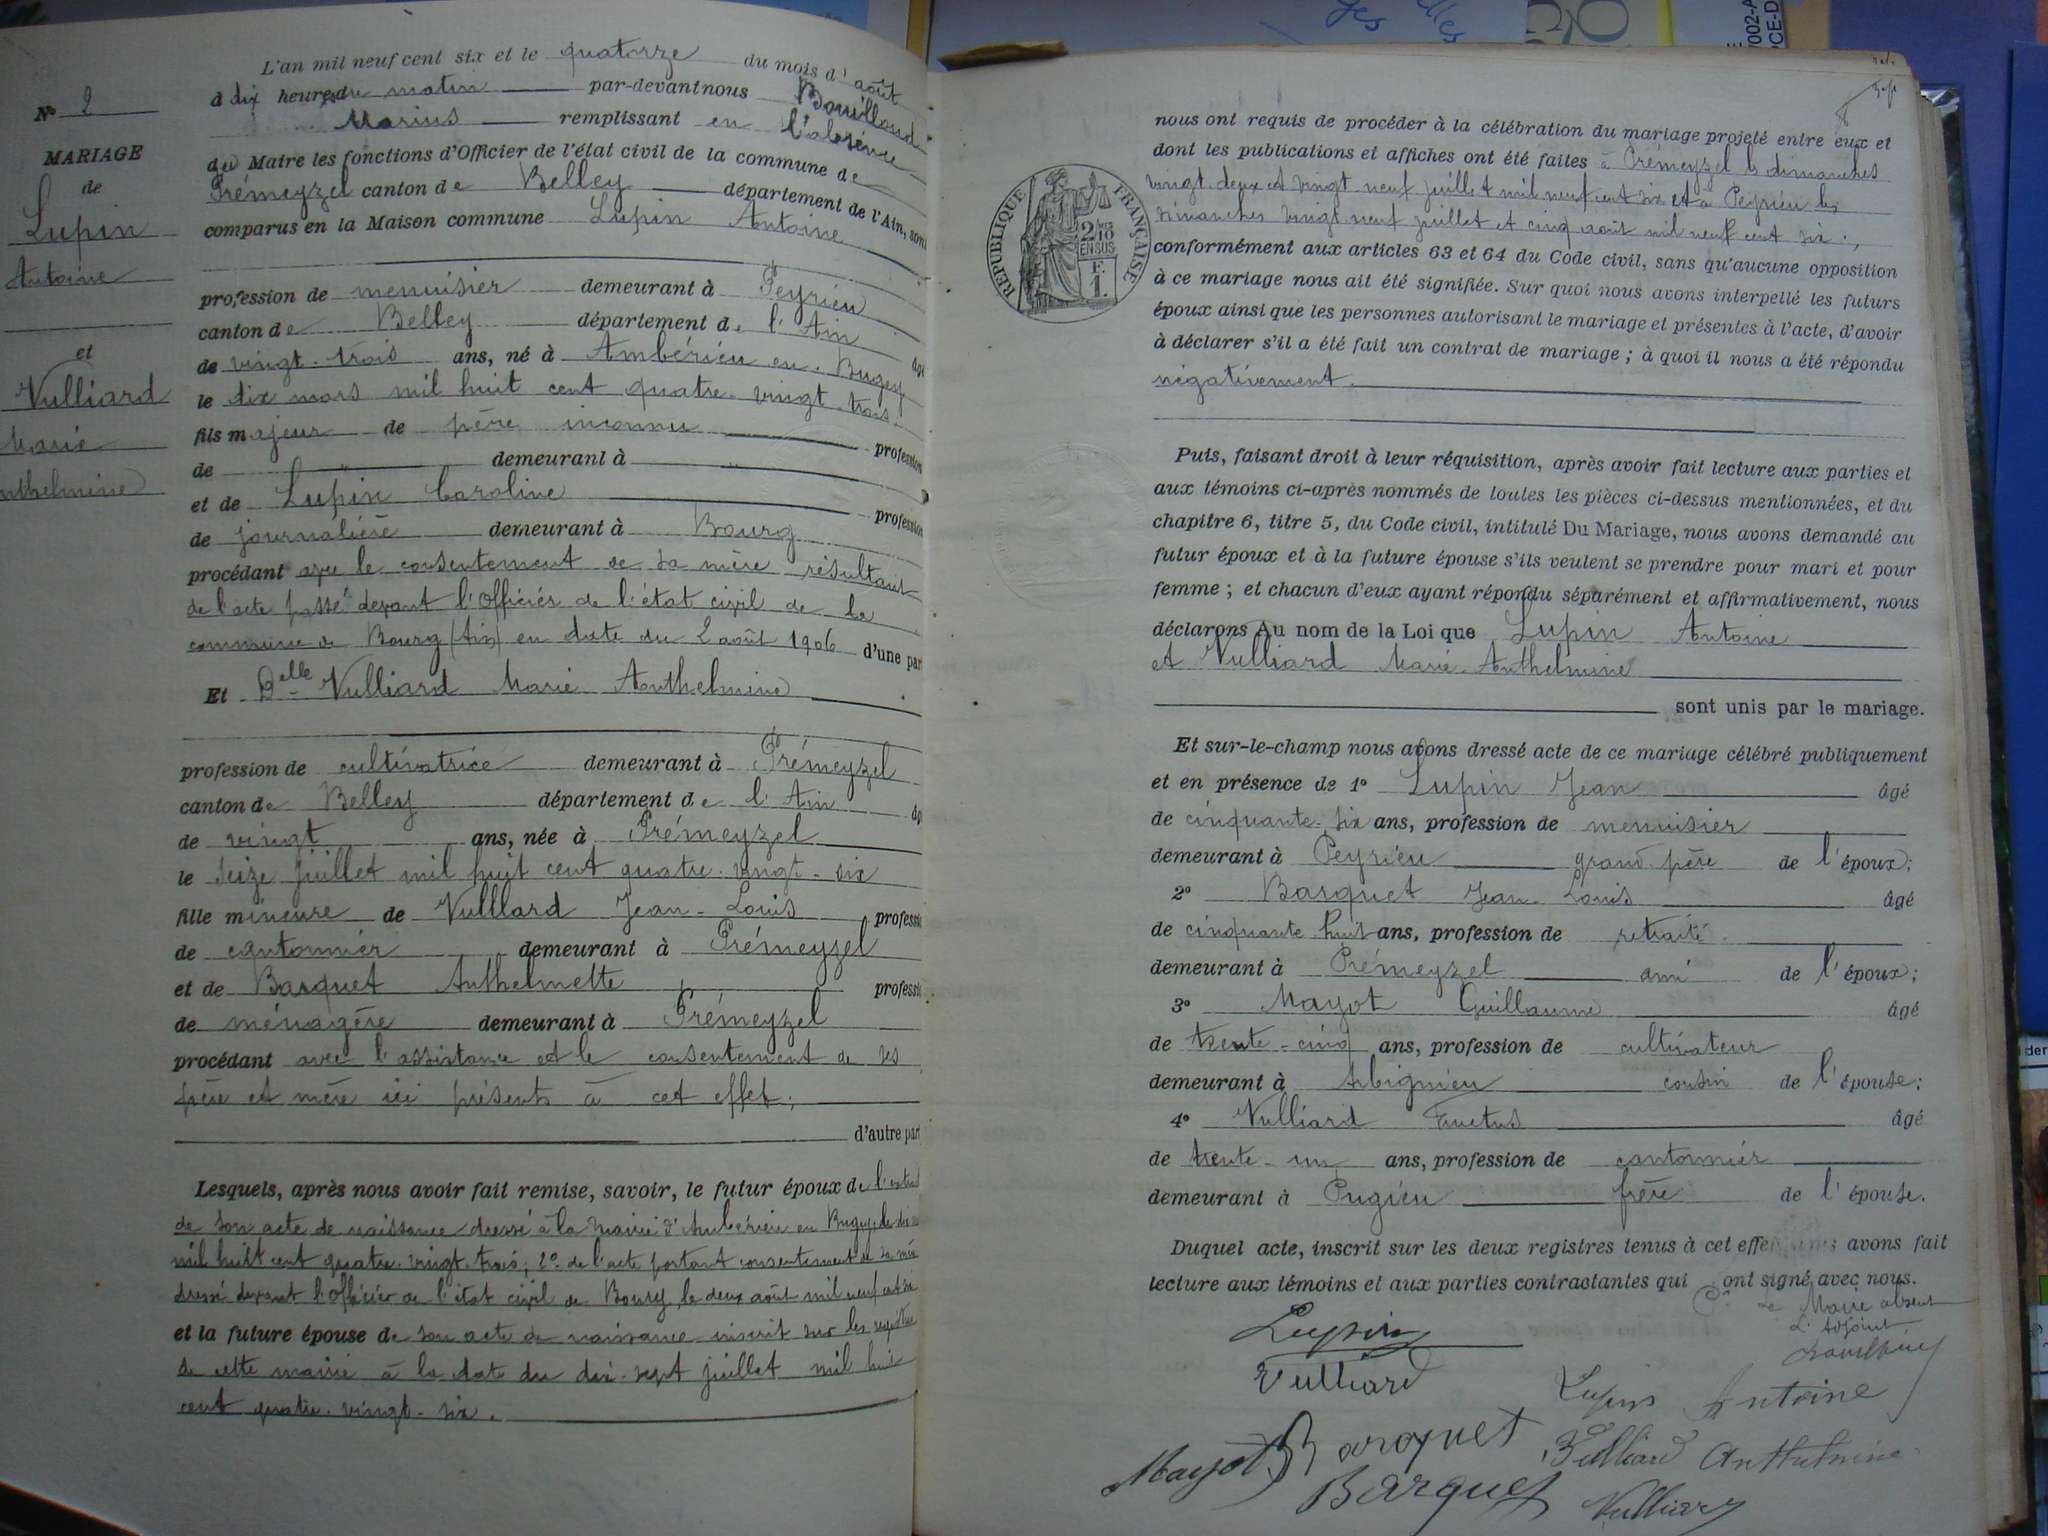 L'an mil neuf cent six et le quatorze du mois d'août
à dix heures du matin par-devant nous Bouilloud
Marius remplissant en l'absence
du Maire les fonctions d'Officier de l'état civil de la commune de
Prémeyzel canton de Belley département de l'Ain, sont
comparus en la Maison commune Lupin Antoine
N° 2
MARIAGE
de
Lupin
Antoine
et
Vulliard
Marie
nthelmine
profession de menuisier demeurant à Peyrieu
canton de Belley département de l'Ain âgé
de vingt-trois ans, né à Ambérieu en-Bugey
le dix mars mil huit cent quatre-vingt-trois
fils majeur de père inconnu profession
de " demeurant à "
et de Lupin Caroline profession
de journalière demeurant à Bourg
procédant avec le consentement de sa mère résultant
de l'acte passé devant l'Officier de l'état civil de la
commune de Bourg (Ain) en date du 2 août 1906 d'une par
Et Delle Vulliard Marie Anthelmine
profession de cultivatrice demeurant à Prémeyzel
canton de Belley département de l'Ain âg
de vingt ans, née à Prémeyzel
le seize juillet mil huit cent quatre-vingt-six
fille mineure de Vulllard Jean-Louis professi
de cantonnier demeurant à Prémeyzel
et de Barquet Anthelmette professi
de ménagère demeurant à Prémeyzel
procédant avec l'assistance et le consentement de ses
père et mère ici présents à cet effet;
d'autre part
Lesquels, après nous avoir fait remise, savoir, le futur époux de
de son acte de naissance dressé à la mairie d'Ambérieu en Bugey
mil huit cent quatre-vingt-trois; 2° de l'acte portant consentement de sa mère
dressé devant l'officier de l'état civil de Bourg le deux août mil neuf cent six
et la future épouse de son acte de naissance inscrit sur les registres
de cette mairie à la date du dix-sept juillet mil huit
cent quatre-vingt-six.
nous ont requis de procéder à la célébration du mariage projeté entre eux et
dont les publications et affiches ont été faites à Prémeyzel les dimanches
vingt-deux et vingt-neuf juillet mil neuf cent six et à Peyrieu les
dimanches vingt-neuf juillet et cinq août mil neuf cent six;
RÉPUBLIQUE FRANÇAISE
2/10
EN SUS
F.
1.
conformément aux articles 63 et 64 du Code civil, sans qu'aucune opposition
à ce mariage nous ait été signifiée. Sur quoi nous avons interpellé les futurs
époux ainsi que les personnes autorisant le mariage et présentes à l'acte, d'avoir
à déclarer s'il a été fait un contrat de mariage; à quoi il nous a été répondu
négativement.
Puis, faisant droit à leur réquisition, après avoir fait lecture aux parties et
aux témoins ci-après nommés de toutes les pièces ci-dessus mentionnées, et du
chapitre 6, titre 5, du Code civil, intitulé Du Mariage, nous avons demandé au
futur époux et à la future épouse s'ils veulent se prendre pour mari et pour
femme; et chacun d'eux ayant répondu séparément et affirmativement, nous
déclarons Au nom de la Loi que Lupin Antoine
et Vulliard Marie-Anthelmine
sont unis par le mariage.
Et sur-le-champ nous avons dressé acte de ce mariage célébré publiquement
et en présence de 1° Lupin Jean âgé
de cinquante-six ans, profession de menuisier
demeurant à Peyrieu grand-père de l'époux;
2° Barquet Jean-Louis âgé
de cinquante-huit ans, profession de retraité
demeurant à Prémeyzel ami de l'époux;
3° Mayot Guillaume âgé
de trente-cinq ans, profession de cultivateur
demeurant à Arbignieu cousin de l'épouse;
4° Vulliard Fructus âgé
de trente-un ans, profession de cantonnier
demeurant à Pugieu frère de l'épouse.
Duquel acte, inscrit sur les deux registres tenus à cet effet avons fait
lecture aux témoins et aux parties contractantes qui ont signé avec nous.
Pr le Maire absent
L'Adjoint
Lupin
Vulliard
Lupin Antoine
Mayot G Barquet
Vulliard Anthelmine
Barquet
Vulliard